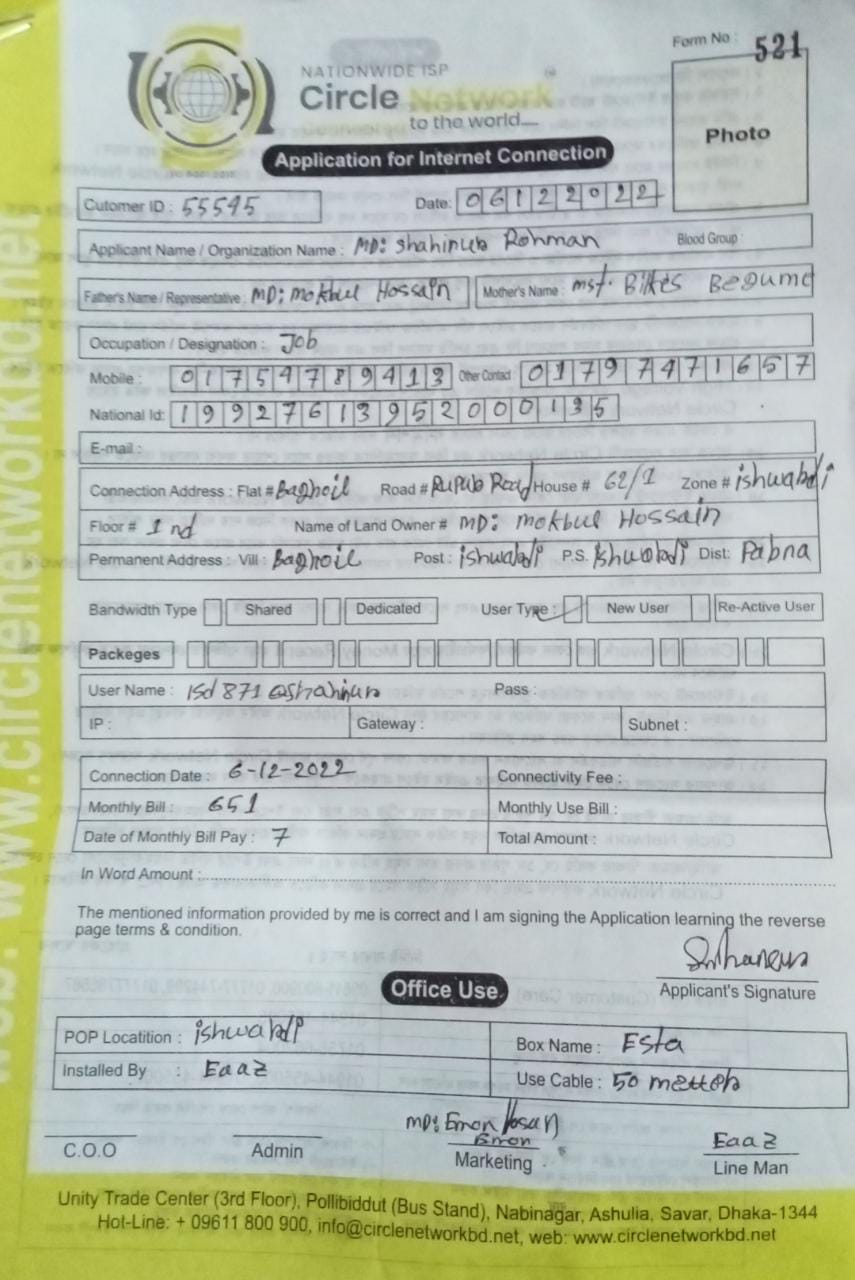 Form No : 521
NATIONWIDE ISP
Circle Network
to the world....
Photo
Application for Internet Connection
Cutomer ID : 55595 Date: 06122022
Applicant Name / Organization Name : MD: Shahinub Rohman Blood Group :
Father's Name / Representative : MD: mokbul Hossain Mother's Name : mst. Bilkes Begume
Occupation / Designation : Job
Mobile : 01754789413 Other Contact 01797471657
National Id: 19927613952000135
E-mail :
Connection Address : Flat # Baghoil Road # Rupub Road House # 62/1 Zone # ishwabdi
Floor # 1 nd Name of Land Owner # MD: mokbul Hossain
Permanent Address : Vill : Baghoil Post : ishwabdi P.S. ishwabdi Dist: Pabna
Bandwidth Type Shared Dedicated User Type : New User Re-Active User
Packeges
User Name : isd871@shahinur Pass :
IP : Gateway : Subnet :
Connection Date : 6-12-2022 Connectivity Fee :
Monthly Bill : 651 Monthly Use Bill :
Date of Monthly Bill Pay : 7 Total Amount :
In Word Amount :
The mentioned information provided by me is correct and I am signing the Application learning the reverse
page terms & condition.
Applicant's Signature
Office Use
POP Locatition : ishwabdi Box Name : Esta
Installed By : Eaaz Use Cable : 50 metteb
MD: Emon Hosan
Emon Eaaz
C.O.O Admin Marketing Line Man
Unity Trade Center (3rd Floor), Pollibiddut (Bus Stand), Nabinagar, Ashulia, Savar, Dhaka-1344
Hot-Line: + 09611 800 900, info@circlenetworkbd.net, web: www.circlenetworkbd.net
web: www.circlenetworkbd.net